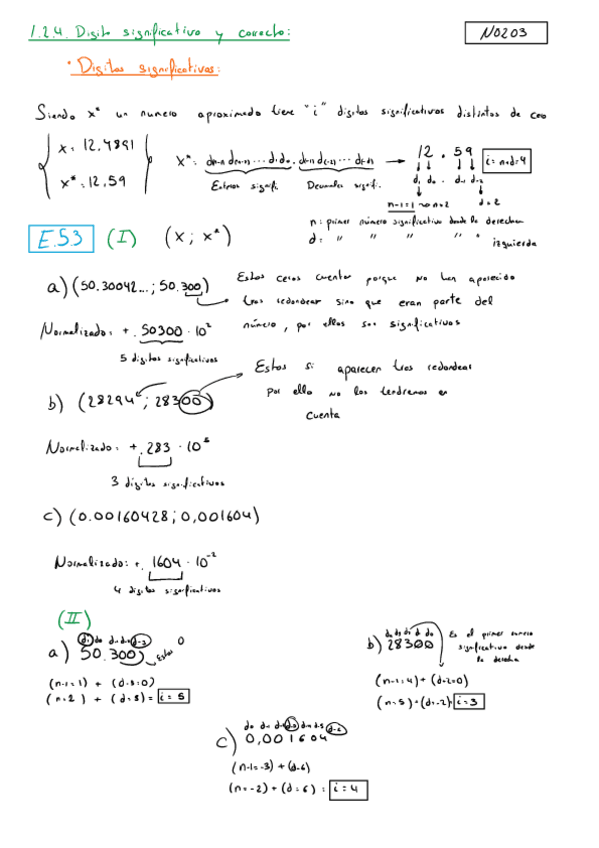 1.2.4. Digito significativo y correcto:
N0203
· Digitos significativos:
Siendo x* un numero aproximado tiene "i" digitos significativos distintos de cero
x = 12.4891
x* = 12.59
x* = →
12 . 59
i = n+d = 4
Enteros signifi. Decimales signif.
d₁ d₀ d₋₁ d₋₂
n-1=1 → n=2 d=2
n: primer número significativo desde la derecha
d: " " " " " izquierda
E.53 (I) (x; x*)
a) (50.30042...; 50.300)
Estos ceros cuentan porque no han aparecido
tras redondear sino que eran parte del
número, por ellos son significativos
Normalizado: + .50300 · 10²
5 digitos significativos
b) (28294; 28300)
Estos si aparecen tras redondear
Por ello no los tendremos en
cuenta
Normalizado: + .283 · 10⁵
3 digitos significativos
c) (0.00160428; 0,001604)
Normalizado: + .1604 · 10⁻²
4 digitos significativos
(II)
a) 50.300
b) 28300
Es el primer numero
significativo desde
la derecha
(n-1=1) +
(n=2) + = i = 5
(n-1=4) +
(n=5) + (d=-2) = i=3
c) 0,001604
(n-1=-3) + (d=6)
(n=-2) + (d=6) = i=4